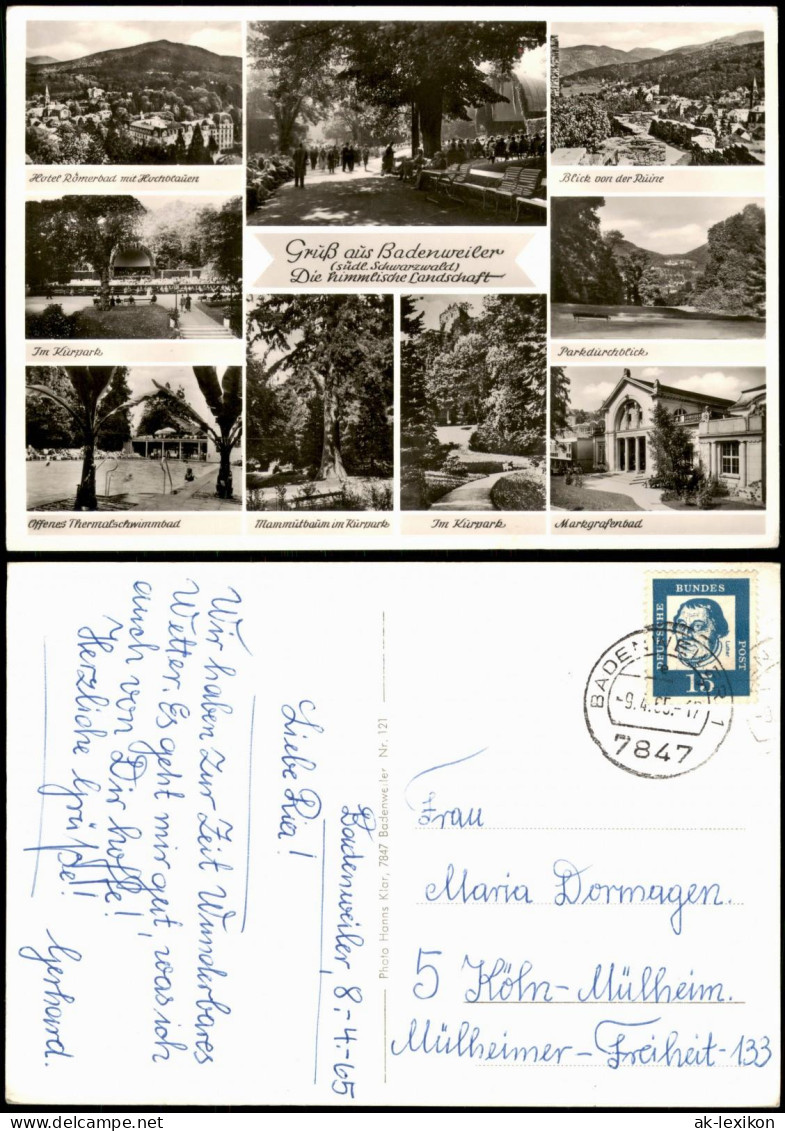 Hotel Römerbad mit Hochblauen
Blick von der Ruine
Gruß aus Badenweiler
(südl. Schwarzwald)
Die himmlische Landschaft
Im Kurpark
Parkdurchblick
Offenes Thermalschwimmbad
Mammutbaum im Kurpark
Im Kurpark
Markgrafenbad
Badenweiler, 8.-4.-65
Liebe Ria!
Wir haben zur Zeit Wunderbares
Wetter. Es geht mir gut, was ich
auch von Dir hoffe!
Herzliche Grüße!
Gerhard.
Photo Hanns Klar, 7847 Badenweiler Nr. 121
DEUTSCHE
BUNDES
POST
Luther
15
BADENWEILER 1
-9.4.65.-17
7847
Frau
Maria Dormagen.
5 Köln-Mülheim.
Mülheimer-Freiheit-133
ak-lexikon